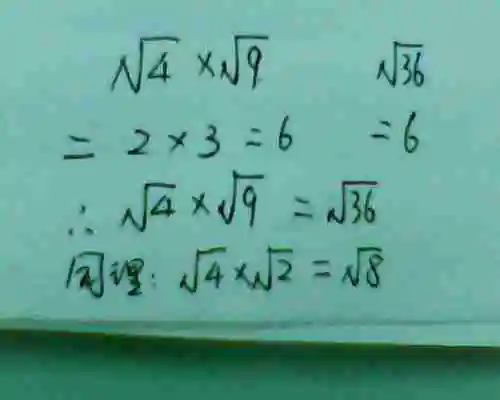 √4 × √9 √36
= 2 × 3 = 6 = 6
∴ √4 × √9 = √36
同理: √4 × √2 = √8